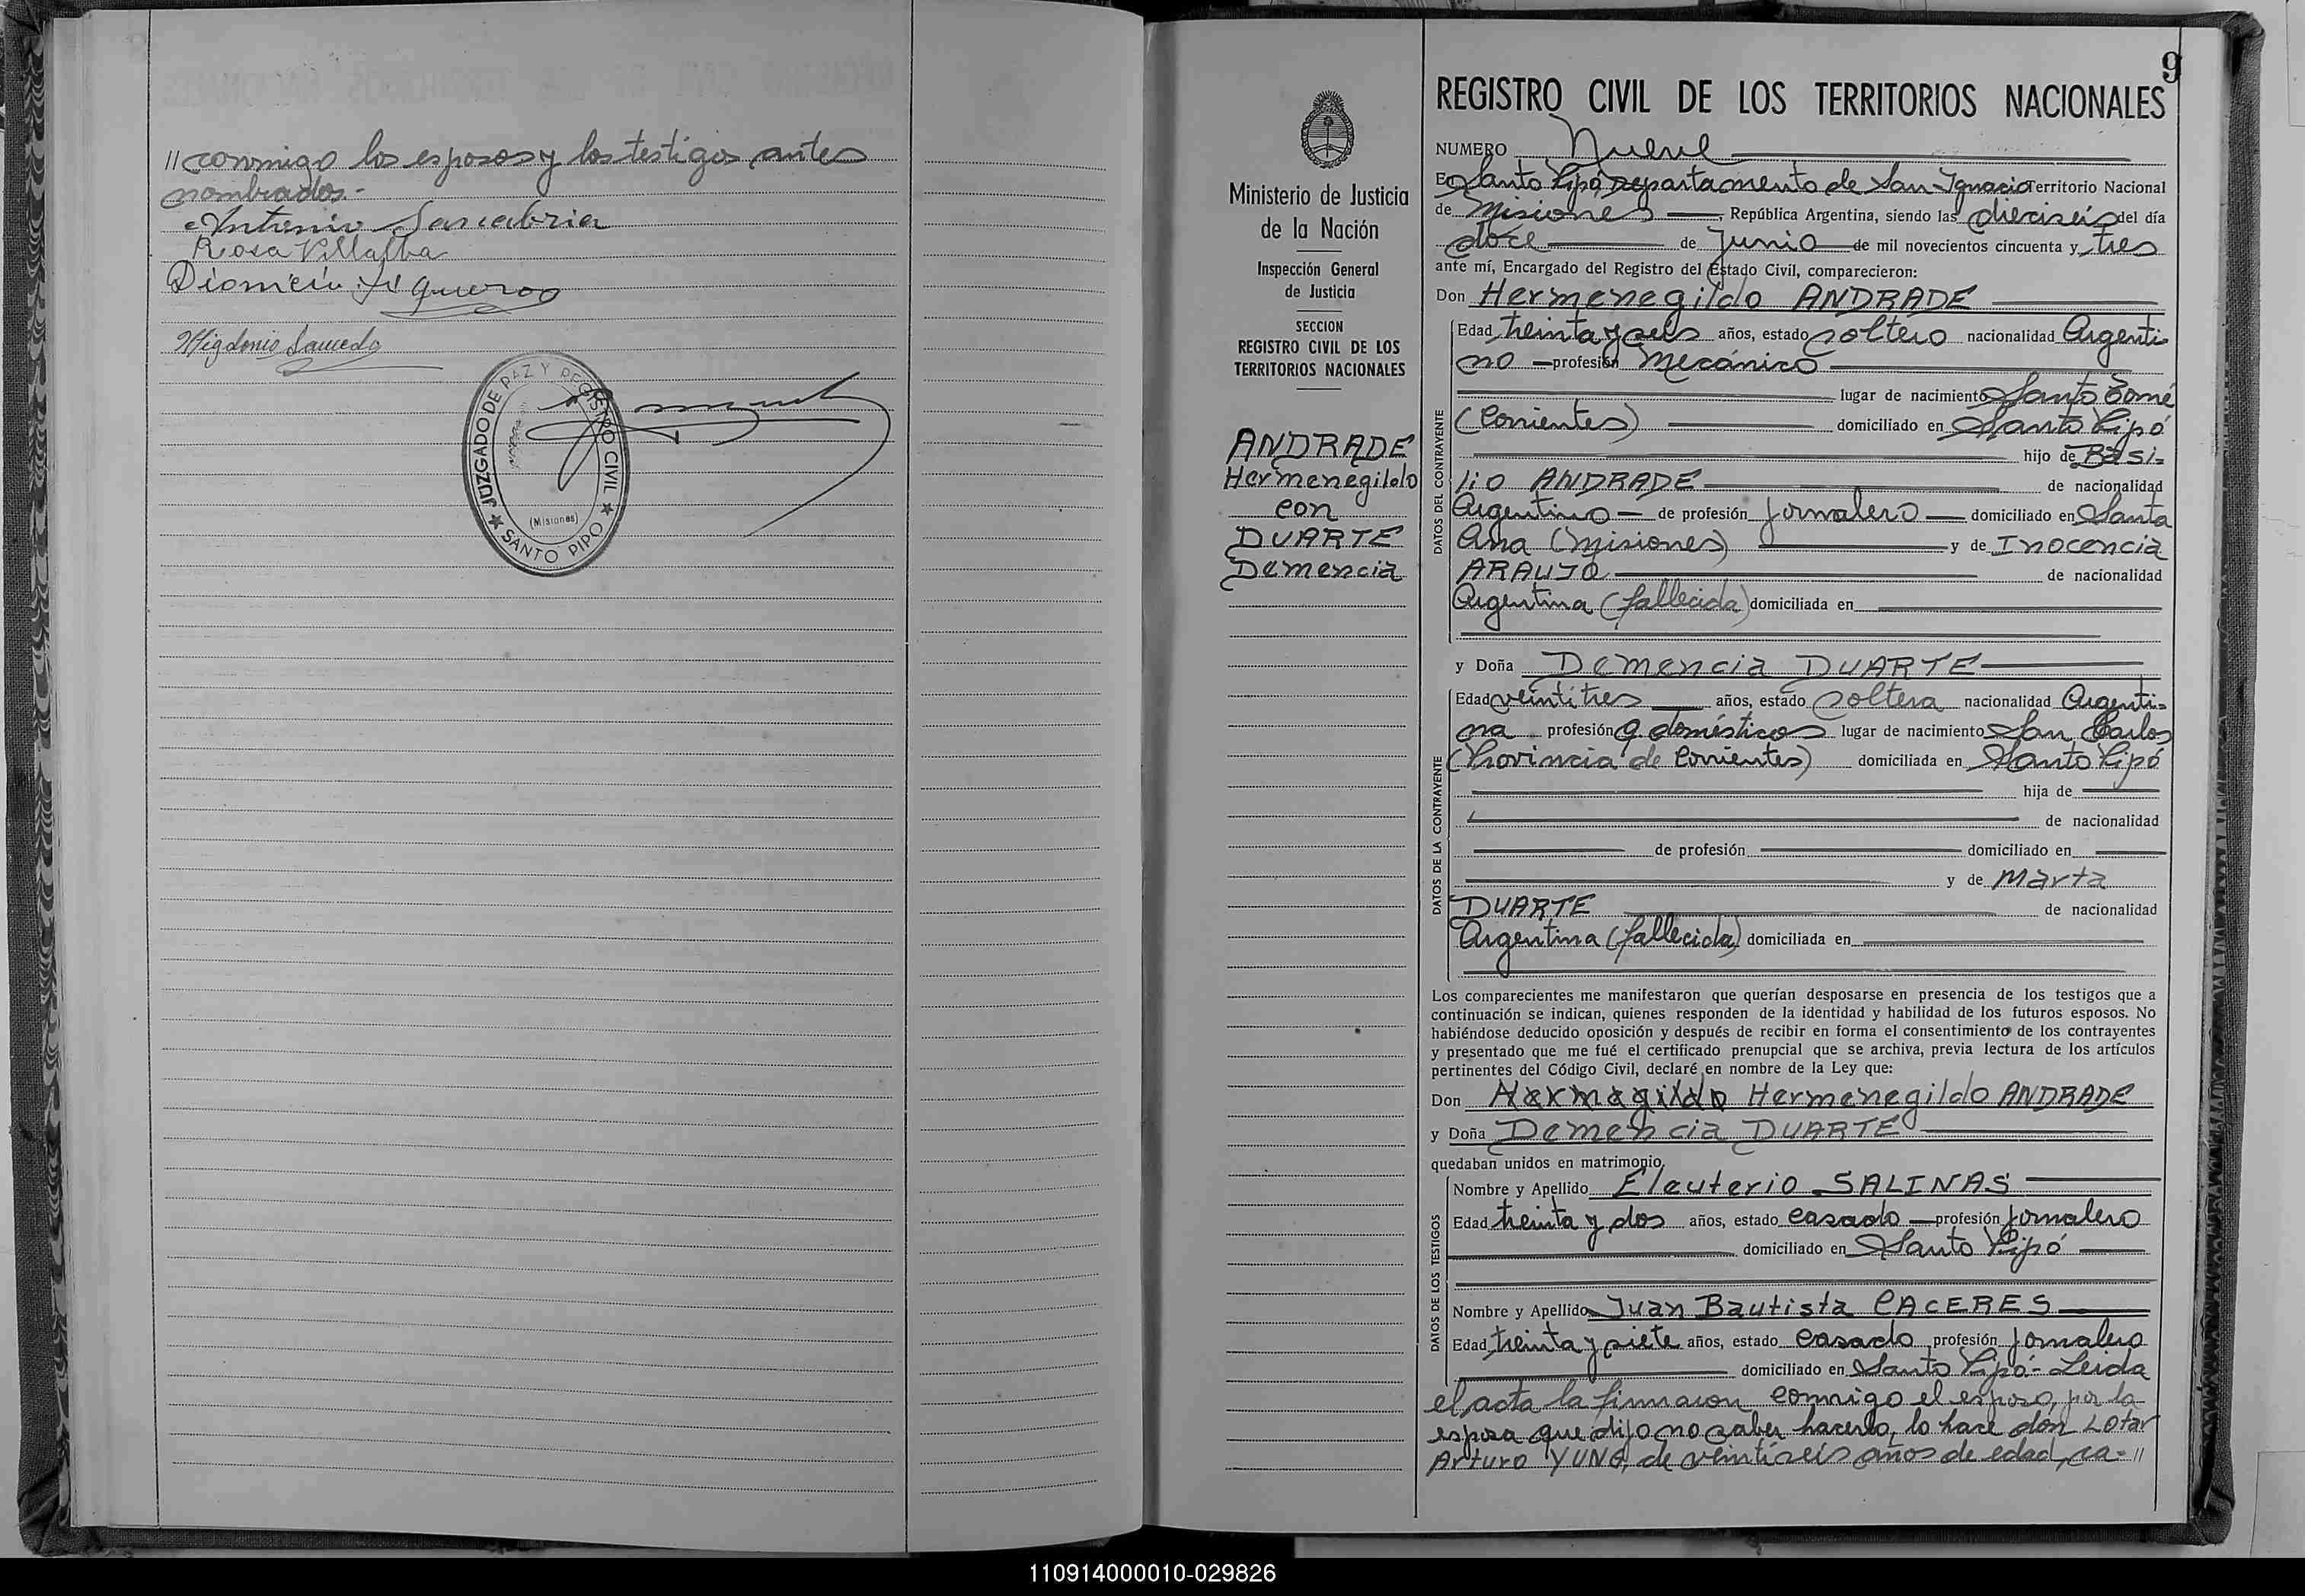 // conmigo los esposos y los testigos antes
nombrados.-
Antonio Sanabria
Rosa Villalba
Higdonio Saucedo
JUZGADO DE PAZ Y REGISTRO CIVIL
(Misiones)
★ SANTO PIPO ★
9
Ministerio de Justicia
de la Nación
Inspección General
de Justicia
SECCION
REGISTRO CIVIL DE LOS
TERRITORIOS NACIONALES
ANDRADE
Hermenegildo
con
DUARTE
Demencia
REGISTRO CIVIL DE LOS TERRITORIOS NACIONALES
NUMERO Nueve
En Santo Pipó, Departamento de San Ignacio Territorio Nacional
de Misiones, República Argentina, siendo las dieciseis del día
doce de Junio de mil novecientos cincuenta y tres
ante mí, Encargado del Registro del Estado Civil, comparecieron:
Don Hermenegildo ANDRADE
DATOS DEL CONTRAYENTE
Edad treinta y seis años, estado soltero nacionalidad Argenti
no profesión Mecánico
lugar de nacimiento Santo Tomé
(Corrientes) domiciliado en Santo Pipó
hijo de Basi=
lio ANDRADE de nacionalidad
Argentino de profesión jornalero domiciliado en Santa
Ana (Misiones) y de Inocencia
ARAUJO de nacionalidad
Argentina (fallecida) domiciliada en
y Doña Demencia DUARTE
DATOS DE LA CONTRAYENTE
Edad veintitres años, estado soltera nacionalidad Argenti=
na profesión q. domésticos lugar de nacimiento San Carlos
(Provincia de Corrientes) domiciliada en Santo Pipó
hija de
de nacionalidad
de profesión domiciliado en
y de Marta
DUARTE de nacionalidad
Argentina (fallecida) domiciliada en
Los comparecientes me manifestaron que querían desposarse en presencia de los testigos que a
continuación se indican, quienes responden de la identidad y habilidad de los futuros esposos. No
habiéndose deducido oposición y después de recibir en forma el consentimiento de los contrayentes
y presentado que me fué el certificado prenupcial que se archiva, previa lectura de los artículos
pertinentes del Código Civil, declaré en nombre de la Ley que:
Don Hermenegildo ANDRADE
y Doña Demencia DUARTE
quedaban unidos en matrimonio.
DATOS DE LOS TESTIGOS
Nombre y Apellido Eleuterio SALINAS
Edad treinta y dos años, estado casado profesión jornalero
domiciliado en Santo Pipó
Nombre y Apellido Juan Bautista CACERES
Edad treinta y siete años, estado casado profesión jornalero
domiciliado en Santo Pipó.- Leida
el acta la firmaron conmigo el esposo, por la
esposa que dijo no saber hacerlo, lo hace don Lotar
Arturo YUNG, de veintiseis años de edad, ca= //
110914000010-029826